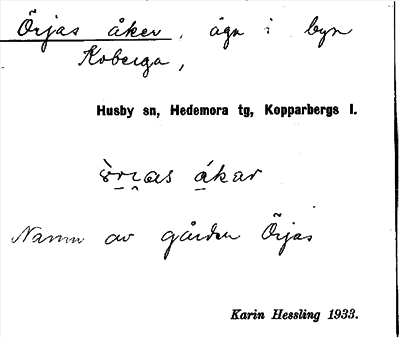 Örjas åker, ägn i byn
Koberga,
Husby sn, Hedemora tg, Kopparbergs l.
ákar
Namn av gården Örjas
Karin Hessling 1933.